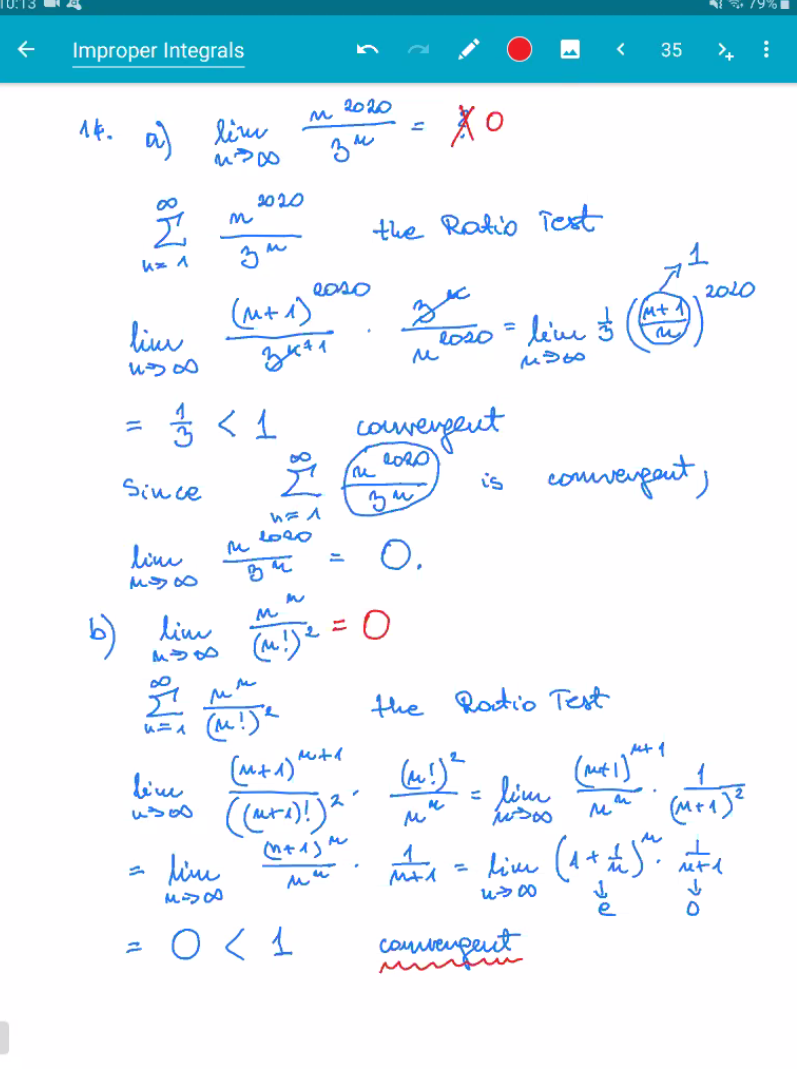 10:13 79%
Improper Integrals 35
14. a) lim n→∞ n^2020 / 3^n = 0
∞ Σ n=1 n^2020 / 3^n the Ratio Test
lim n→∞ (n+1)^2020 / 3^(n+1) · 3^n / n^2020 = lim n→∞ 1/3 ((n+1)/n)^2020 → 1
= 1/3 < 1 convergent
Since ∞ Σ n=1 n^2020 / 3^n is convergent,
lim n→∞ n^2020 / 3^n = 0.
b) lim n→∞ n^n / (n!)^2 = 0
∞ Σ n=1 n^n / (n!)^2 the Ratio Test
lim n→∞ (n+1)^(n+1) / ((n+1)!)^2 · (n!)^2 / n^n = lim n→∞ (n+1)^(n+1) / n^n · 1 / (n+1)^2
= lim n→∞ (n+1)^n / n^n · 1 / (n+1) = lim n→∞ (1 + 1/n)^n · 1 / (n+1)
↓ e ↓ 0
= 0 < 1 convergent